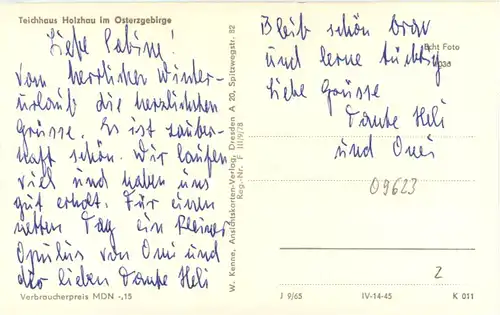 Teichhaus Holzhau im Osterzgebirge
Liebe Sabine!
Vom herrlichen Winter-
urlaub die herzlichsten
Grüsse. Es ist zauber-
haft schön. Wir laufen
viel und haben uns
gut erholt. Für einen
netten Tag ein kleiner
von Omi und
der lieben Tante Heli
Verbraucherpreis MDN -,15
W. Kenne, Ansichtskarten-Verlag, Dresden A 20, Spitzwegstr. 82
Reg.-Nr. F III/9/78
Bleib schön brav
und lerne tüchtig
Echt Foto
Liebe Grüsse
Tante Heli
und Omi
09623
2
J 9/65 IV-14-45 K 011